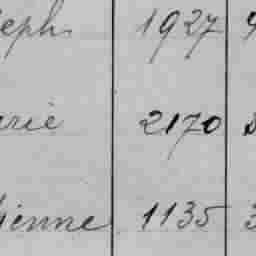 eph 1927
rie 2170
ienne 1135 3